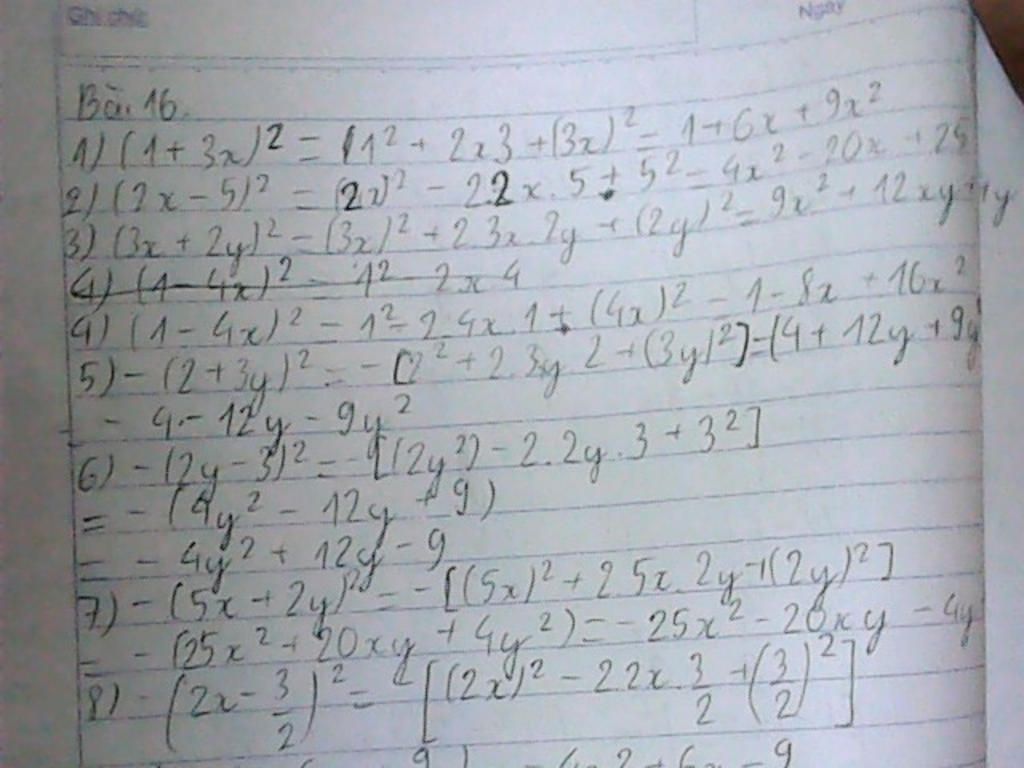 Ghi chú: Ngày
Bài 16.
1) (1 + 3x)² = (1² + 2x3 + (3x)² = 1 + 6x + 9x²
2) (2x - 5)² = (2x)² - 2.2x.5 + 5² = 4x² - 20x + 25
3) (3x + 2y)² = (3x)² + 2.3x.2y + (2y)² = 9x² + 12xy + 4y
4) (1 - 4x)² = 1² - 2x4
4) (1 - 4x)² = 1² - 2.4x.1 + (4x)² = 1 - 8x + 16x²
5) - (2 + 3y)² = - [2² + 2.3y.2 + (3y)²] = -(4 + 12y + 9y
- 4 - 12y - 9y²
6) - (2y - 3)² = - [(2y²) - 2.2y.3 + 3²]
= - (4y² - 12y + 9)
= - 4y² + 12y - 9
7) - (5x + 2y)² = - [(5x)² + 2.5x.2y + (2y)²]
= - (25x² + 20xy + 4y²) = - 25x² - 20xy - 4y
8) - (2x - 3/2)² = - [(2x)² - 2.2x.3/2 + (3/2)²]
9) = - 4x² + 6x - 9